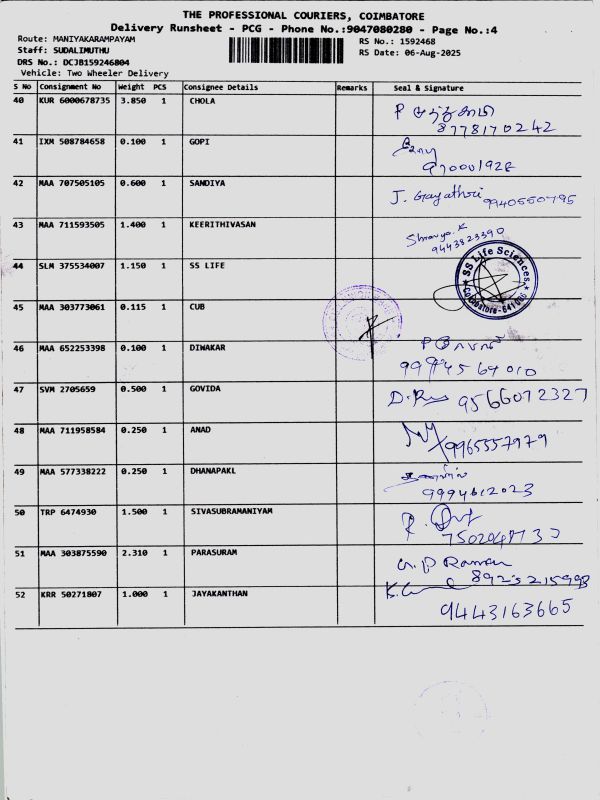 THE PROFESSIONAL COURIERS, COIMBATORE
Delivery Runsheet - PCG - Phone No.:9047080280 - Page No.:4
Route: MANIYAKARAMPAYAM
RS No.: 1592468
Staff: SUDALIMUTHU
RS Date: 06-Aug-2025
DRS No.: DCJB159246804
Vehicle: Two Wheeler Delivery
S No Consignment No Weight PCS Consignee Details Remarks Seal & Signature
40 KUR 6000678735 3.850 1 CHOLA
8778170242
41 IXM 508784658 0.100 1 GOPI
42 MAA 707505105 0.600 1 SANDIYA J. Gayathri 9940550795
43 MAA 711593505 1.400 1 KEERITHIVASAN
9443823390
44 SLM 375534007 1.150 1 SS LIFE SS Life Sciences
Coimbatore
45 MAA 303773061 0.115 1 CUB
46 MAA 652253398 0.100 1 DIWAKAR
47 SVM 2705659 0.500 1 GOVIDA 9566072327
48 MAA 711958584 0.250 1 ANAD 9965557979
49 MAA 577338222 0.250 1 DHANAPAKL
9994612023
50 TRP 6474930 1.500 1 SIVASUBRAMANIYAM
51 MAA 303875590 2.310 1 PARASURAM
52 KRR 50271807 1.000 1 JAYAKANTHAN
9443163665